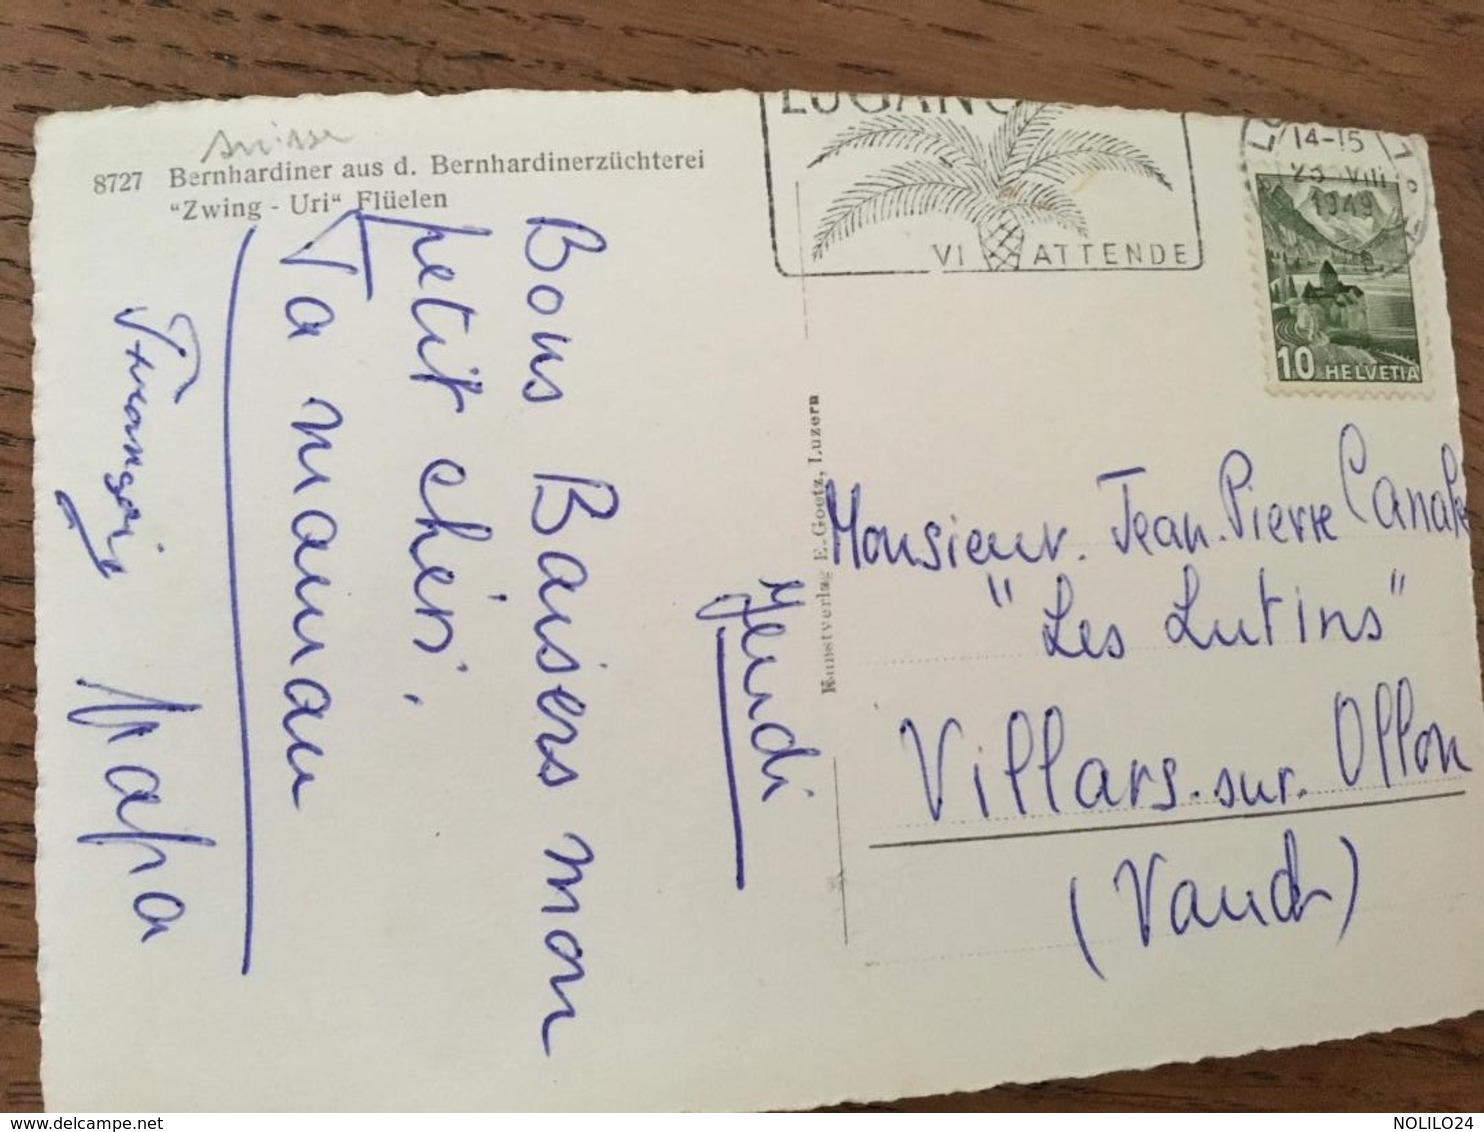 suisse
8727 Bernhardiner aus d. Bernhardinerzüchterei
"Zwing - Uri" Flüelen
LUGANO
VI ATTENDE
14-15
VIII
1949
10 HELVETIA
Kunstverlag E. Goetz, Luzern
Jeudi
Bons Baisers mon
petit chéri.
Ta maman
François papa
Monsieur. Jean-Pierre
"Les Lutins"
Villars-sur-Ollon
(Vaud)
NOLILO24
delcampe.net